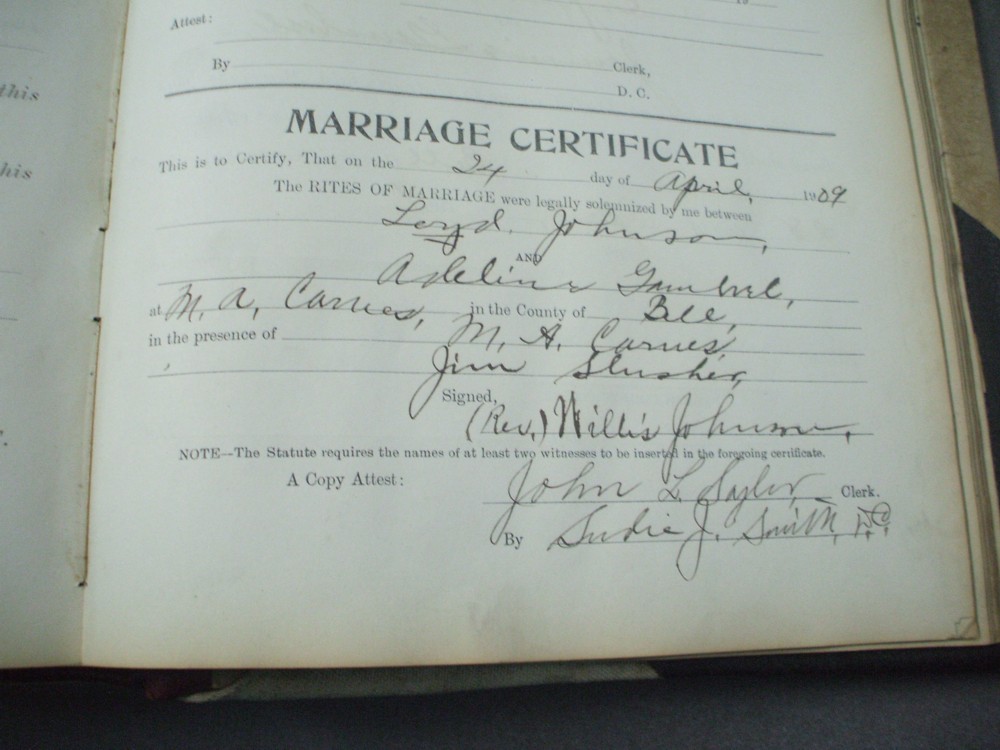 19
Attest:
By Clerk,
D. C.
this
his
MARRIAGE CERTIFICATE
This is to Certify, That on the 24 day of April, 1909
The RITES OF MARRIAGE were legally solemnized by me between
Loyd. Johnson,
AND
Adeline Gambrel,
at M. A. Carnes, in the County of Bell,
in the presence of M. A. Carnes,
Jim Slusher,
Signed,
(Rev.) Willis Johnson,
NOTE—The Statute requires the names of at least two witnesses to be inserted in the foregoing certificate.
A Copy Attest: John L. Saylor, Clerk.
By Sudie J. Smith, D.C.